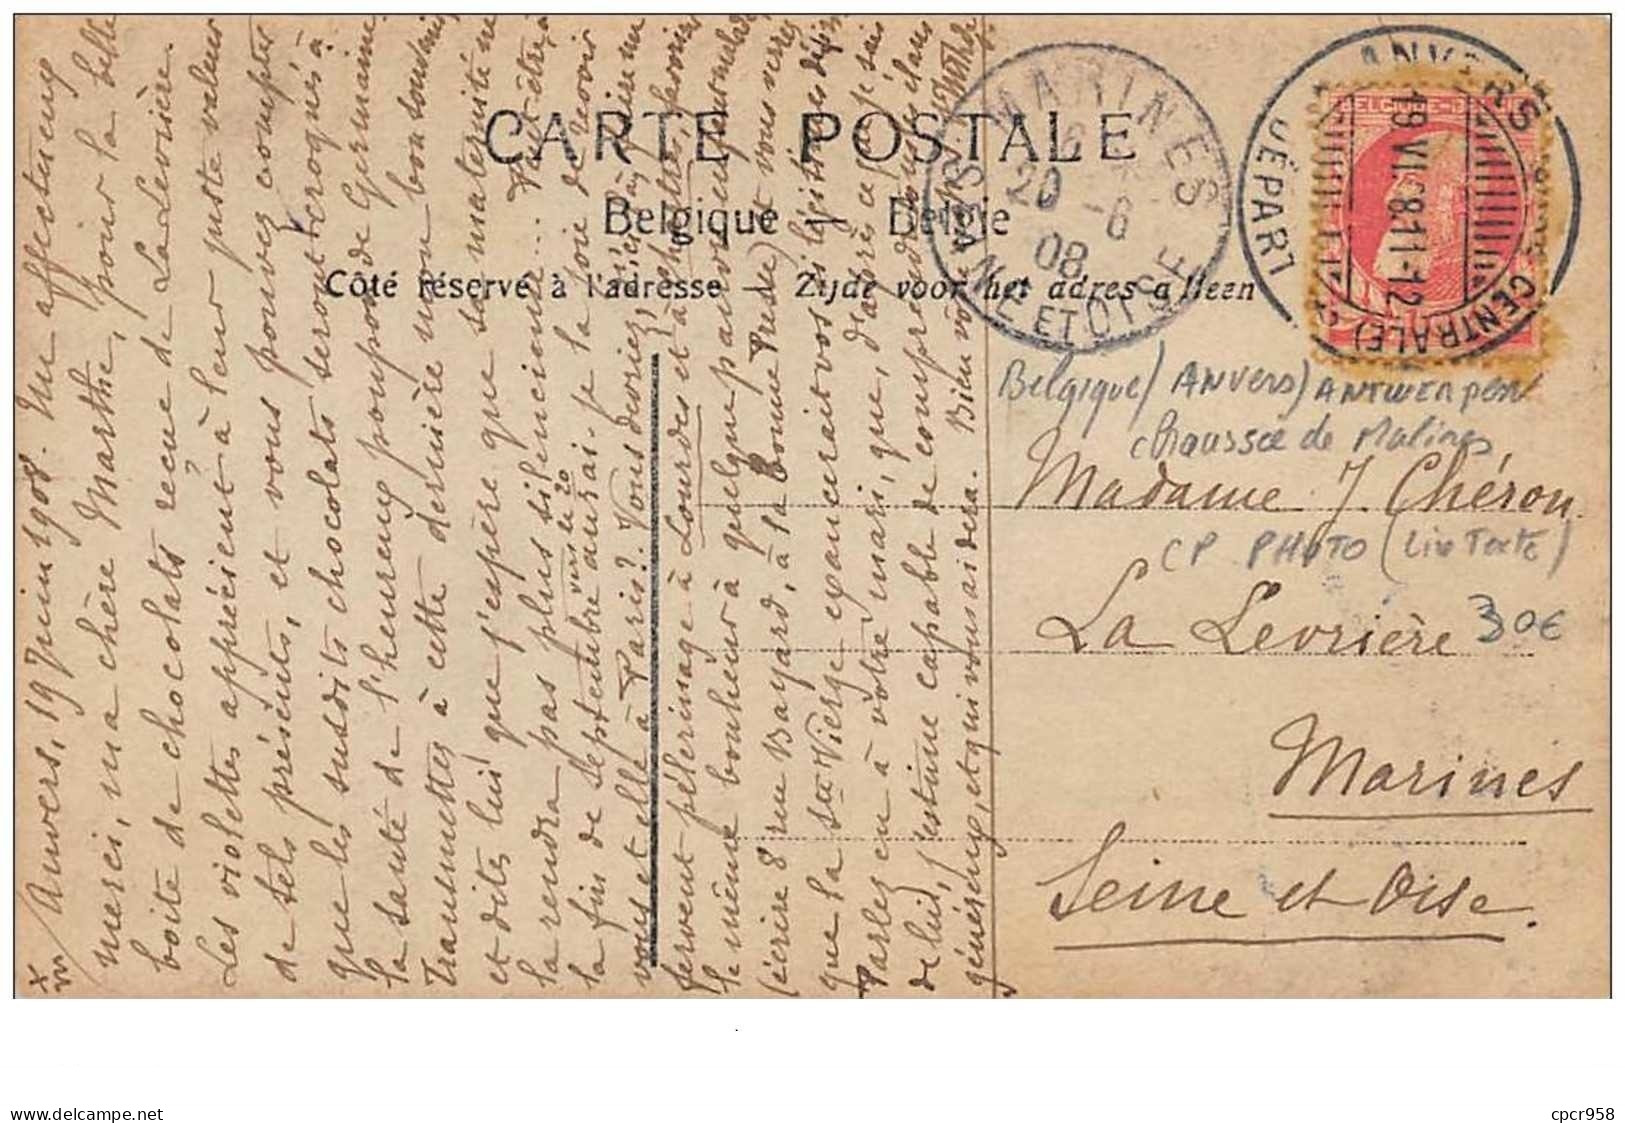 CARTE POSTALE
Belgique – België
Côté réservé à l'adresse – Zijde voor het adres alleen
MARINES
20 -6
08
SEINE ET OISE
ANVERS (CENTRALE)
19 VI.08.11-12
DÉPART
Belgique / (ANVERS) ANTWERPEN
chaussée de Malines
Madame J. Chéron
CP PHOTO (Lire Texte)
La Levrière
30€
Marines
Seine et Oise.
Anvers, 19 Juin 1908. Un affectueux
merci, ma chère Marthe, pour la belle
boite de chocolats reçue de La Levrière.
Les violettes apprécient à leur juste valeur
de tels présents, et vous pouvez compter
que les susdits chocolats seront croqués à
la santé de l'heureux poupon de Germaine.
Transmettez à cette dernière mon bon souvenir
et dites lui que j'espère que sa maternité ne
la rendra pas plus silencieuse... Peut-être, à
la fin de Septembre vers le 20 aurai-je la joie de revoir
vous et elle à Paris? Vous devriez, faire un
fervent pélerinage à Lourdes et
le même bonheur à quelque pauvre
(écrire 8 rue Bayard, à la Bonne Presse) et vous verrez
que la Ste Vierge exaucerait vos si légitimes désirs
Parlez en à votre mari, que, d'après ce que je sais
de lui, j'estime capable de comprendre
généreux, et qui vous aidera. Bien vôtre
www.delcampe.net
cpcr958